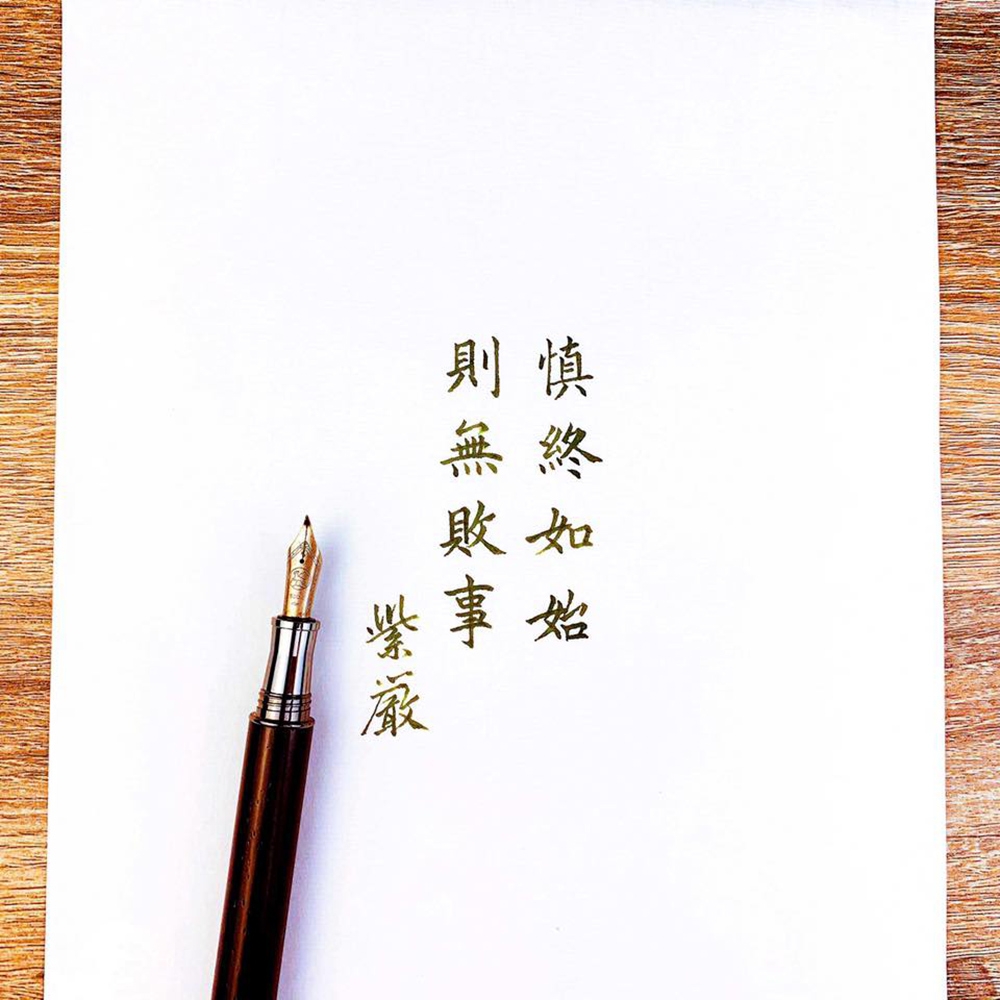 慎終如始
則無敗事
紫嚴